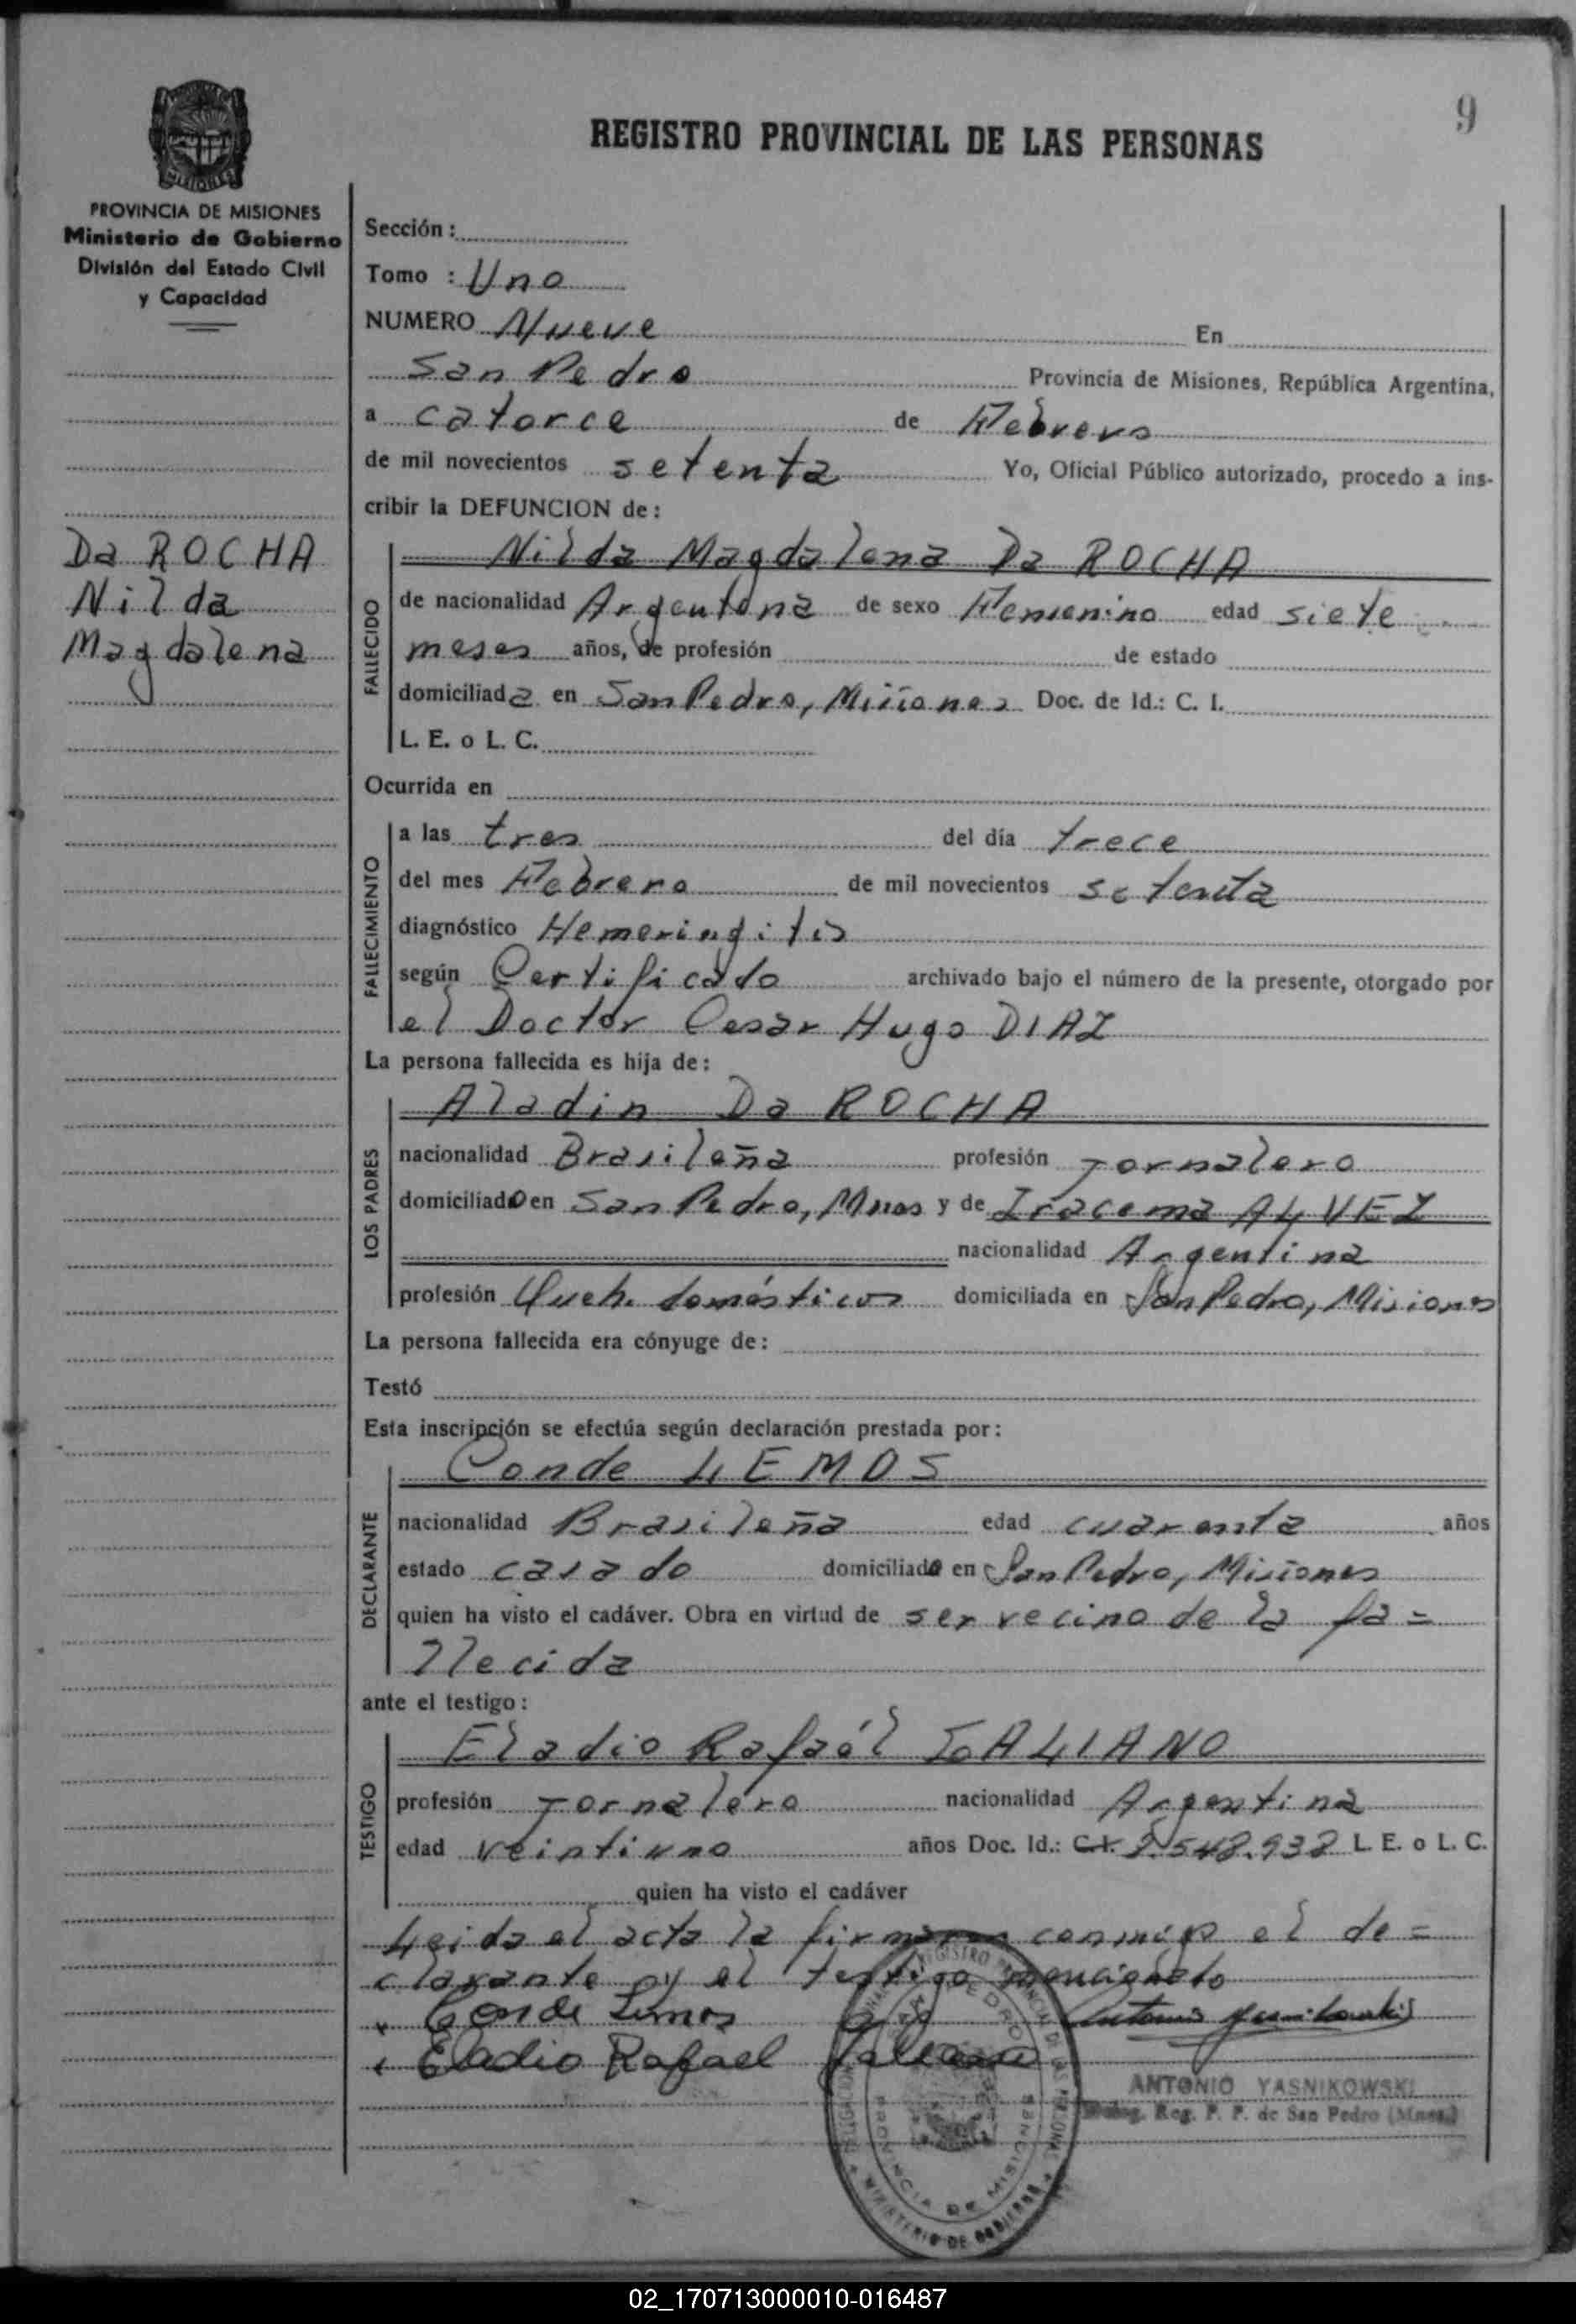 9
REGISTRO PROVINCIAL DE LAS PERSONAS
PROVINCIA DE MISIONES
Ministerio de Gobierno
División del Estado Civil
y Capacidad
Da ROCHA
Nilda
Magdalena
Sección :
Tomo : Uno
NUMERO Nueve En
San Pedro Provincia de Misiones, República Argentina,
a catorce de Febrero
de mil novecientos setenta Yo, Oficial Público autorizado, procedo a ins-
cribir la DEFUNCION de :
FALLECIDO
Nilda Magdalena Da ROCHA
de nacionalidad Argentina de sexo Femenino edad siete
meses años, de profesión de estado
domiciliada en San Pedro, Misiones Doc. de Id.: C. I.
L. E. o L. C.
Ocurrida en
FALLECIMIENTO
a las tres del día trece
del mes Febrero de mil novecientos setenta
diagnóstico Hemeringitis
según Certificado archivado bajo el número de la presente, otorgado por
el Doctor Cesar Hugo DIAZ
La persona fallecida es hija de :
LOS PADRES
Aladin Da ROCHA
nacionalidad Brasileña profesión Jornalero
domiciliado en San Pedro, Mnes y de Iracema ALVEZ
nacionalidad Argentina
profesión Queh. domésticos domiciliada en San Pedro, Misiones
La persona fallecida era cónyuge de :
Testó
Esta inscripción se efectúa según declaración prestada por :
DECLARANTE
Conde LEMOS
nacionalidad Brasileña edad cuarenta años
estado casado domiciliado en San Pedro, Misiones
quien ha visto el cadáver. Obra en virtud de ser vecino de la fa=
llecida
ante el testigo :
TESTIGO
Eladio Rafaél GALIANO
profesión Jornalero nacionalidad Argentina
edad veintiuno años Doc. Id.: C.I. L. E. o L. C.
quien ha visto el cadáver
Leida el acta la firman conmigo el de=
clarante y el testigo mencionado
Conde Lemos
Eladio Rafael Galeano
ANTONIO YASNIKOWSKI
Deleg. Reg. P. P. de San Pedro (Mnes.)
REGISTRO PROVINCIAL DE LAS PERSONAS
SAN PEDRO
PROVINCIA DE MISIONES
MINISTERIO DE GOBIERNO
02_170713000010-016487